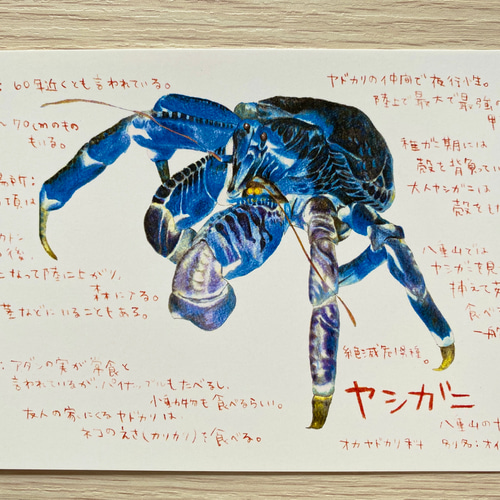 : 60年近くとも言われている。
〜70cmのもの
もいる。
場所:
って頃は
後、
なって陸に上がり、
森にいる。
などにいることもある。
: アダンの実が常食と
言われているが、パイナップルもたべるし、
小動物も食べるらしい。
友人の家にくるヤドカリは
ネコのえさ(カリカリ)を食べる。
ヤドカリの仲間で夜行性。
陸上で最大で最強の
甲
稚ガニ期には
殻を背負ってい
大人ヤシガニは
殻をも
八重山では
ヤシガニを見
捕えて
食べ
絶滅危惧種。
ヤシガニ
八重山のヤ
オカヤドカリ科 別名:オイ